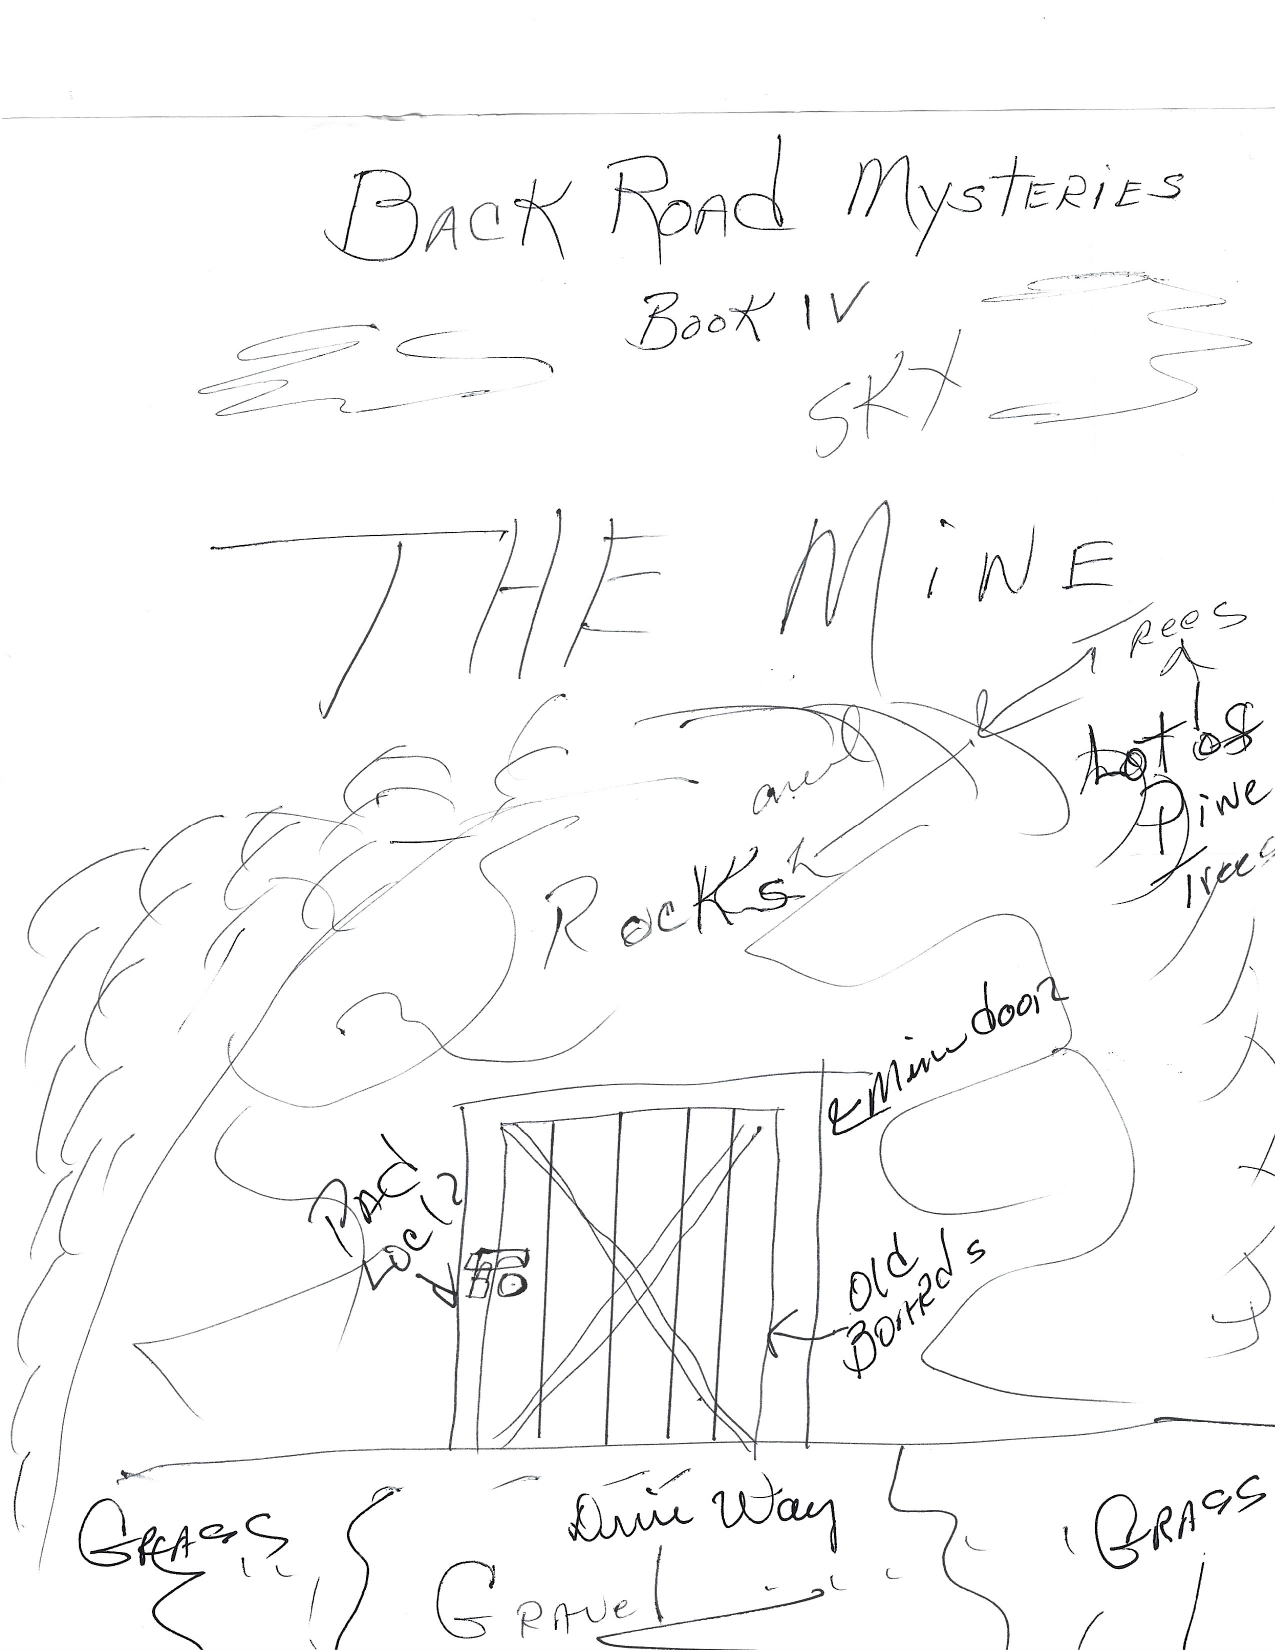 BACK ROAD MYSTERIES
BOOK IV
SKY
THE MINE
TREES
Lot of
Pine
Trees
and
ROCKS
Mine door
PAD
LOCK
Old
BOARDS
GRASS
Drive Way
GRASS
GRAVEL